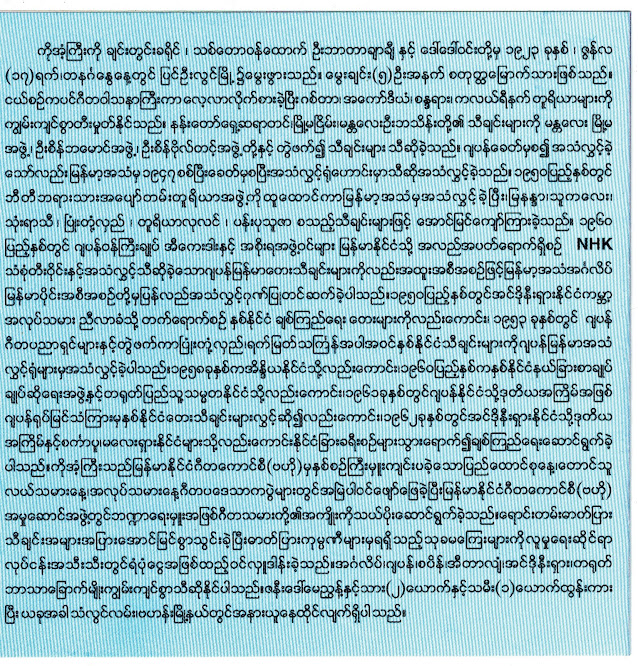 ကိုအံ့ကြီးကို ချင်းတွင်းခရိုင် ၊ သစ်တောဝန်ထောက် ဦးဘာတာချာချီ နှင့် ဒေါ်ဒေါ်ဝင်းတို့မှ ၁၉၂၃ ခုနှစ် ၊ ဇွန်လ
(၁၇)ရက်၊တနင်္ဂနွေနေ့တွင် ပြင်ဦးလွင်မြို့၌မွေးဖွားသည်။ မွေးချင်း(၅)ဦးအနက် စတုတ္ထမြောက်သားဖြစ်သည်။
ငယ်စဉ်ကပင်ဂီတဝါသနာကြီးကာလေ့လာလိုက်စားခဲ့ပြီးဂစ်တာ၊ အကော်ဒီယံ၊ စန္ဒရား၊ ကလယ်ရီနက်တူရိယာများကို
ကျွမ်းကျင်စွာတီးမှုတ်နိုင်သည်။ နန်းတော်ရှေ့ဆရာတင်၊မြို့မငြိမ်း၊မန္တလေးဦးဘသိန်းတို့၏ သီချင်းများကို မန္တလေး မြို့မ
အဖွဲ့၊ ဦးစိန်ဘမောင်အဖွဲ့၊ ဦးစိန်ဗိုလ်တင့်အဖွဲ့တို့နှင့် တွဲဖက်၍ သီချင်းများ သီဆိုခဲ့သည်။ ဂျပန်ခေတ်မှစ၍အသံလွှင့်ခဲ့
သော်လည်းမြန်မာ့အသံမှ ၁၉၄၇စစ်ပြီးခေတ်မှစပြီးအသံလွှင့်ရုံဟောင်းမှာသီဆိုအသံလွှင့်ခဲ့သည်။ ၁၉၅၀ပြည့်နှစ်တွင်
ဘီတီဘရားသားအပျော်တမ်းတူရိယာအဖွဲ့ကိုထူထောင်ကာမြန်မာ့အသံမှအသံလွှင့်ခဲ့ပြီး၊မြနန္ဒာ၊သူကလေး၊
သုံးရာသီ ၊ ပြုံးတုံ့လှည် ၊ တူရိယာလုလင် ၊ ပန်းပုသူဇာ စသည့်သီချင်းများဖြင့် အောင်မြင်ကျော်ကြားခဲ့သည်။ ၁၉၆၀
ပြည့်နှစ်တွင် ဂျပန်ဝန်ကြီးချုပ် အီကေးဒါးနှင့် အစိုးရအဖွဲ့ဝင်များ မြန်မာနိုင်ငံသို့ အလည်အပတ်ရောက်ရှိစဉ် NHK
သံစုံတီးဝိုင်းနှင့်အသံလွှင့်သီဆိုခဲ့သောဂျပန်မြန်မာတေးသီချင်းများကိုလည်းအထူးအစီအစဉ်ဖြင့်မြန်မာ့အသံအင်္ဂလိပ်
မြန်မာပိုင်းအစီအစဉ်တို့မှပြန်လည်အသံလွှင့်ဂုဏ်ပြုတင်ဆက်ခဲ့ပါသည်။၁၉၅၁ပြည့်နှစ်တွင်အင်ဒိုနီးရှားနိုင်ငံကမ္ဘာ့
အလုပ်သမား ညီလာခံသို့ တက်ရောက်စဉ် နှစ်နိုင်ငံ ချစ်ကြည်ရေး တေးများကိုလည်းကောင်း၊ ၁၉၅၃ ခုနှစ်တွင် ဂျပန်
ဂီတပညာရှင်များနှင့်တွဲဖက်ကာပြုံးတုံ့လှည်၊ရက်မြတ်သင်္ကြန်အပါအဝင်နှစ်နိုင်ငံသီချင်းများကိုဂျပန်မြန်မာအသံ
လွှင့်ရုံများမှအသံလွှင့်ခဲ့ပါသည်။၁၉၅၈ခုနှစ်ကအိန္ဒိယနိုင်ငံသို့လည်းကောင်း၊၁၉၆၀ပြည့်နှစ်ကနှစ်နိုင်ငံနယ်ခြားစာချုပ်
ချုပ်ဆိုရေးအဖွဲ့နှင့်တရုတ်ပြည်သူ့သမ္မတနိုင်ငံသို့လည်းကောင်း၊၁၉၆၁ခုနှစ်တွင်ဂျပန်နိုင်ငံသို့ဒုတိယအကြိမ်အဖြစ်
ဂျပန်ရုပ်မြင်သံကြားမှနှစ်နိုင်ငံတေးသီချင်းများလွှင့်ဆို၍လည်းကောင်း၊၁၉၆၂ခုနှစ်တွင်အင်ဒိုနီးရှားနိုင်ငံသို့ဒုတိယ
အကြိမ်နှင့်စင်္ကာပူ၊မလေးရှားနိုင်ငံများသို့လည်းကောင်းနိုင်ငံခြားခရီးစဉ်များသွားရောက်၍ချစ်ကြည်ရေးဆောင်ရွက်ခဲ့
ပါသည်။ကိုအံ့ကြီးသည်မြန်မာနိုင်ငံဂီတကောင်စီ(ဗဟို)မှနှစ်စဉ်ကြီးမှူးကျင်းပခဲ့သောပြည်ထောင်စုနေ့၊တောင်သူ
လယ်သမားနေ့၊အလုပ်သမားနေ့ဂီတပဒေသာကပွဲများတွင်အမြဲပါဝင်ဖျော်ဖြေခဲ့ပြီးမြန်မာနိုင်ငံဂီတကောင်စီ(ဗဟို)
အမှုဆောင်အဖွဲ့တွင်ဘဏ္ဍာရေးမှူးအဖြစ်ဂီတသမားတို့၏အကျိုးကိုသယ်ပိုးဆောင်ရွက်ခဲ့သည်။ရောင်းတမ်းဓာတ်ပြား
သီချင်းအများအပြားအောင်မြင်စွာသွင်းခဲ့ပြီးဓာတ်ပြားကုမ္ပဏီများမှရရှိသည့်သုခမကြေးများကိုလူမှုရေးဆိုင်ရာ
လုပ်ငန်းအသီးသီးတွင်ရံပုံငွေအဖြစ်ထည့်ဝင်လှူဒါန်းခဲ့သည်။အင်္ဂလိပ်၊ဂျပန်၊စပိန်၊အီတာလျံ၊အင်ဒိုနီးရှား၊တရုတ်
ဘာသာခြောက်မျိုးကျွမ်းကျင်စွာသီဆိုနိုင်ပါသည်။ဇနီးဒေါ်မေညွန့်နှင့်သား(၂)ယောက်နှင့်သမီး(၁)ယောက်ထွန်းကား
ပြီးယခုအခါသံလွင်လမ်း၊ဗဟန်းမြို့နယ်တွင်အနားယူနေထိုင်လျက်ရှိပါသည်။